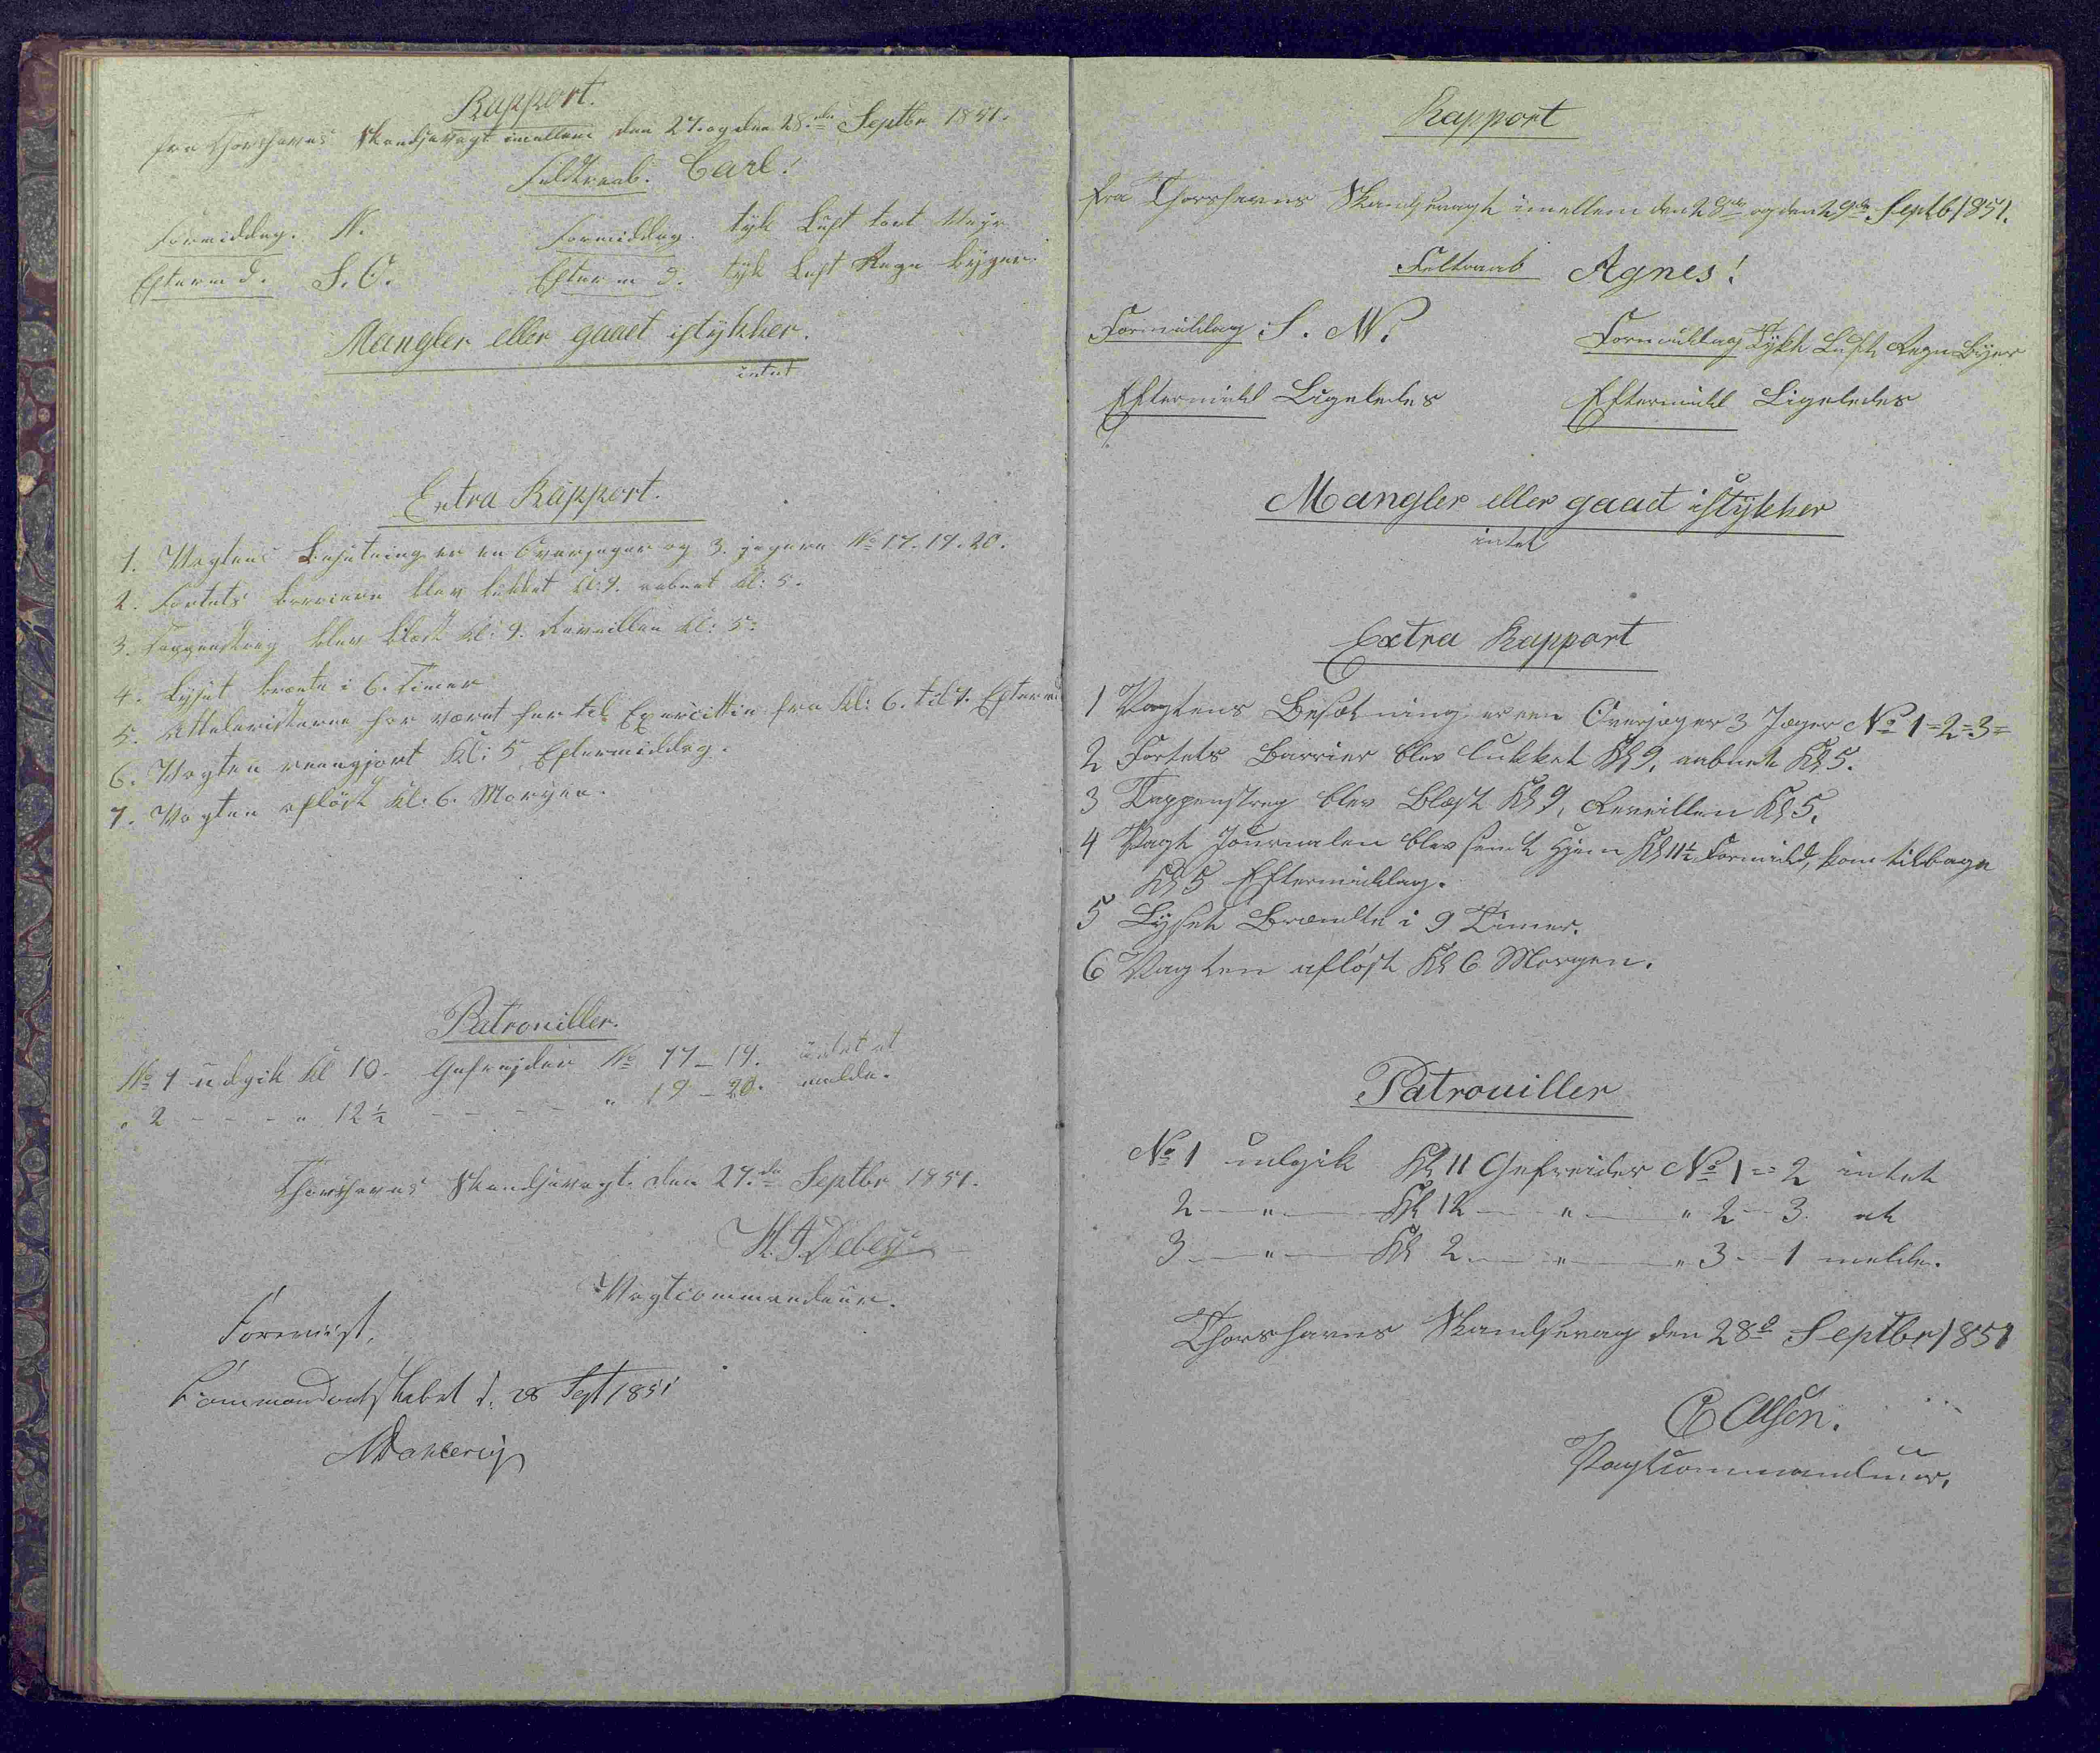 Rapport.
fra Thorshavns Skandsevagt imellem den 27. og den 28.de Septbr 1851.
Feldtraab. Carl!
Formiddag. N. Formiddag. tyk Luft tort Veyr
Efterm d. S. O. Efterm d. tyk Luft Regn byger.
Mangler eller gaaet istykker.
intet
Extra Rapport.
1. Vagtens Besætning er en Overjeger og 3. jegere No 17. 19. 20.
2. Fortets barriere blev lukket Kl: 9. aabnet Kl: 5.
3. Tappenstreg blev blæst Kl: 9. Reveillen Kl: 5.
4. Lyset brænte i 6. Timer
5. Atteleristerne har været her til Exersittie fra Kl: 6. til 7. Efterm
6. Vagten reengjort Kl: 5 Eftermiddag.
7. Vagten afløst Kl: 6. Morgen.
Patrouiller.
No 1 udgik Kl 10. Gefrejder No 17 - 19. intet at
" 2 - - - " 12½ - - - - " 19 - 20. melde.
Thorshavns Skandsevagt den 27.de Septbr 1851.
H. J. Debes
Vagtcommandeur.
Foreviist,
Commandantskabet d. 28 Sept 1851
Dahlerup
Rapport
fra Thorshavns Skandsevagt imellem den 28de og den 29de Septb 1851.
Feltraab Agnes!
Formiddag S. W. Formiddag Tykk Luft, Regn Byer
Eftermidd Ligeledes Eftermidd Ligeledes
Mangler eller gaaet istykker
intet
Extra Rapport
1 Vagtens Besætning er een Overjæger 3 Jæger No 1=2=3=
2 Fortets Barrier blev lukket Kl 9, aabnet Kl 5.
3 Tappenstreg blev Blæst Kl 9, Reveillen Kl 5.
4 Vagt Journalen blev sendt Hjem Kl 11½ Formidd, kom tilbage
Kl 5 Eftermiddag.
5 Lyset Brændte i 9 Timer.
6 Vagten afløst Kl 6 Morgen.
Patrouiller
No 1 udgik Kl 11 Gefreider No 1 = 2 intet
2 — " — Kl 12 — " — " 2 - 3 at
3 — " — Kl 2 — " — " 3 - 1 melde.
Thorshavns Skandsevag den 28de Septbr 1851
Olsen.
Vagtcommandeur,